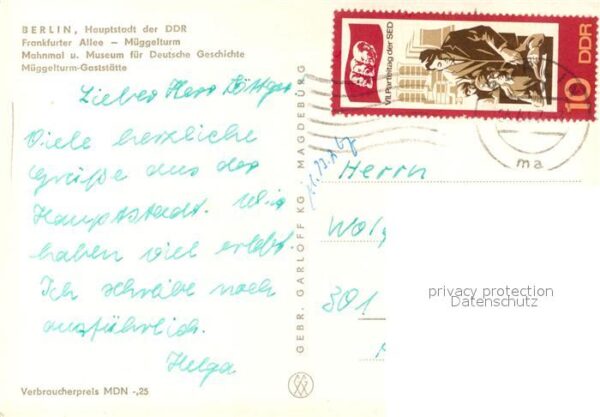 BERLIN, Hauptstadt der DDR
Frankfurter Allee – Müggelturm
Mahnmal u. Museum für Deutsche Geschichte
Müggelturm-Gaststätte
Lieber Herr Böttger
Viele herzliche
Grüße aus der
Hauptstadt. Wir
haben viel erlebt.
Ich schreibe noch
ausführlich.
Helga
Verbraucherpreis MDN -,25
GEBR. GARLOFF KG MAGDEBURG
VII. Parteitag der SED
10 DDR
ma
Herrn
Wolf
301
privacy protection
Datenschutz